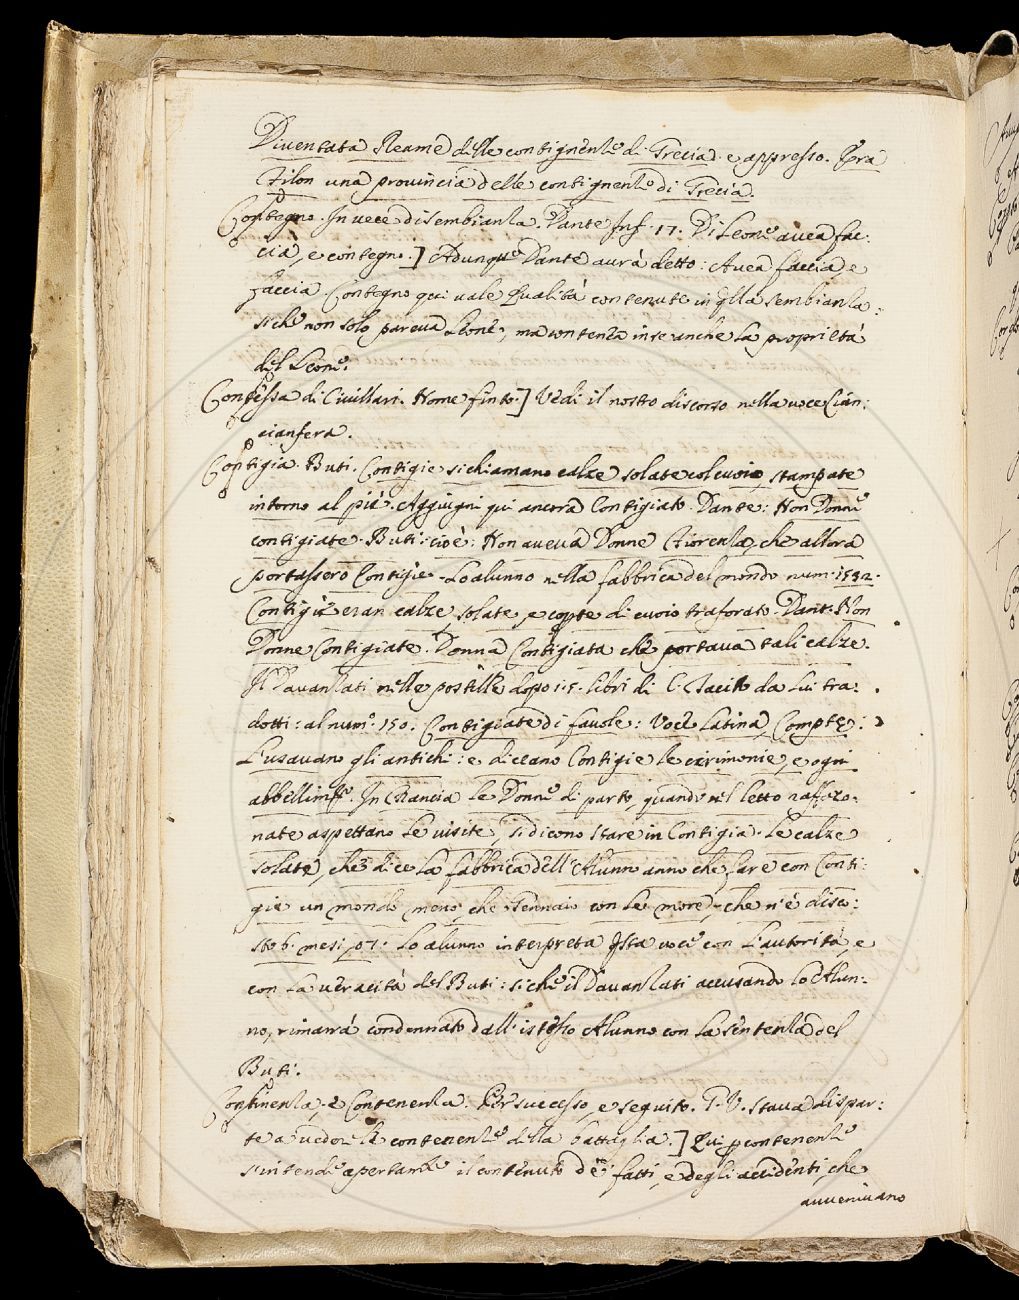 Diventata Reame delle contignenze di Grecia. e appresso. Era
Filon una provincia delle contignenze di Grecia.
Contegno. In vece di sembianza. Dante Inf. 17. Di Leone avea fac:
cia, e contegno.] Adunque Dante aurà detto: Avea faccia, e
faccia. Contegno qui vale Qualità contenute in qlla sembianza:
siche non solo pareva Leone, ma contenea in se anche la proprietà
del Leone.
Contessa di Civillari. Nome finto.] Vedi il nostro discorso nella voce Cian:
cianfera.
Contigia. Buti. Contigie si chiamano calze solate col cuoio, stampate
intorno al piè. Aggiugni qui ancora Contigiato. Dante: Non Donne
contigiate. Buti: cioè: Non aveva Donne Fiorenza, che allora
portassero Contigie. Lo alunno nella fabbrica del mondo num. 1532.
Contigie eran calze, solate, e copte di cuoio traforato. Dant. Non
Donne Contigiate. Donna Contigiata che portava tali calze.
Il Davanzati nelle postille dopo i 5. libri di C. Tacito da lui tra:
dotti: al num.º 150. Contigiate di favole: Voce Latina, Compte:
L'usavano gli antichi: e diceano Contigie le cirimonie, e ogni
abbellimto. In Francia le Donne di parto, quando nel letto raffazo:
nate aspettano le visite, si dicono stare in Contigia. Le calze
solate, che dice la fabbrica dell'Alunno anno che fare con Conti:
gie un mondo meno, che Gennaio con le more, che n'è disco:
sto 6. mesi, o 7. Lo alunno interpreta qsta voce con l'autorità, e
con la veracità del Buti: siche il Davanzati accusando lo Alun:
no, rimarrà condennato dall'istesso Alunno con la sentenza del
Buti.
Continenza, e Contenenza. Per successo, e seguito. G.V. stava dispar:
te a veder le contenenze della battaglia.] Qui p contenenze
s'intende apertamte il contenuto de' fatti, e degli accidenti, che
avvenivano